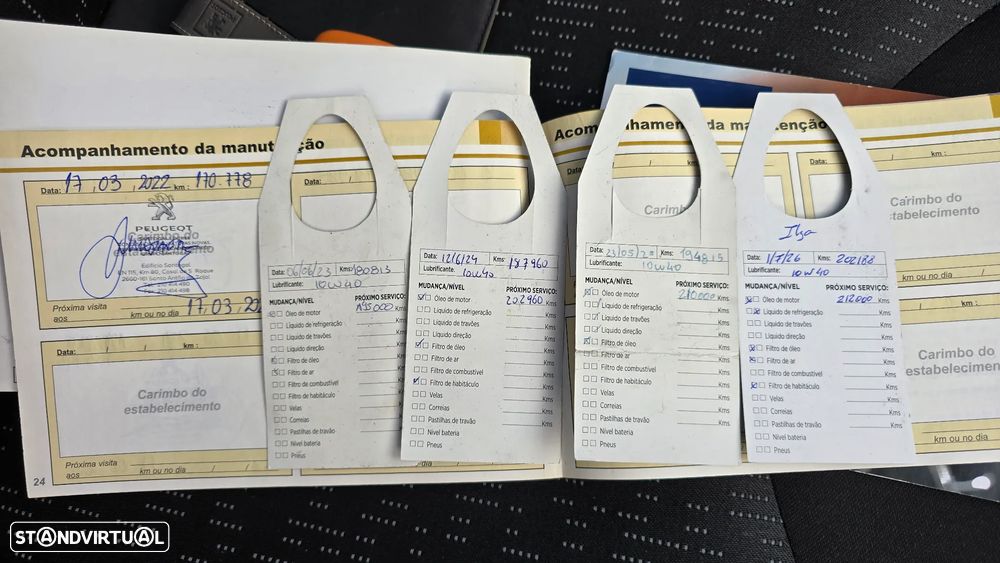 Acompanhamento da manutenção
Data: 17,03,2022 km: 170.778
PEUGEOT
Carimbo do
estabelecimento
Próxima visita
aos
km ou no dia 17.03.
Data: / / km :
Carimbo do
estabelecimento
Próxima visita
aos
km ou no dia / /
24
Data:
Data: 06/06/23 Kms: 180813
Lubrificante: 10W40
MUDANÇA/NÍVEL PRÓXIMO SERVIÇO:
Óleo de motor 195000 Kms
Líquido de refrigeração Kms
Líquido de travões Kms
Líquido direção Kms
Filtro de óleo Kms
Filtro de ar Kms
Filtro de combustível Kms
Filtro de habitáculo Kms
Velas Kms
Correias Kms
Pastilhas de travão Kms
Nível bateria
Pneus
Data: 12/6/24 Kms: 187960
Lubrificante: 10W40
MUDANÇA/NÍVEL PRÓXIMO SERVIÇO:
Óleo de motor 202960 Kms
Líquido de refrigeração Kms
Líquido de travões Kms
Líquido direção Kms
Filtro de óleo Kms
Filtro de ar Kms
Filtro de combustível Kms
Filtro de habitáculo Kms
Velas Kms
Correias Kms
Pastilhas de travão Kms
Nível bateria
Pneus
Acompanhamento da manutenção
Carim
Data: Kms: 194815
Lubrificante: 10W40
MUDANÇA/NÍVEL PRÓXIMO SERVIÇO:
Óleo de motor 210000 Kms
Líquido de refrigeração Kms
Líquido de travões Kms
Líquido direção Kms
Filtro de óleo Kms
Filtro de ar Kms
Filtro de combustível Kms
Filtro de habitáculo Kms
Velas Kms
Correias Kms
Pastilhas de travão Kms
Nível bateria
Pneus
Data: 1/7/26 Kms: 202188
Lubrificante: 10W40
MUDANÇA/NÍVEL PRÓXIMO SERVIÇO:
Óleo de motor 212000 Kms
Líquido de refrigeração Kms
Líquido de travões Kms
Líquido direção Kms
Filtro de óleo Kms
Filtro de ar Kms
Filtro de combustível Kms
Filtro de habitáculo Kms
Velas Kms
Correias Kms
Pastilhas de travão Kms
Nível bateria
Pneus
km :
Carimbo do
stabelecimento
km ou no dia / /
km :
Carimbo do
km ou no dia / /
STANDVIRTUAL